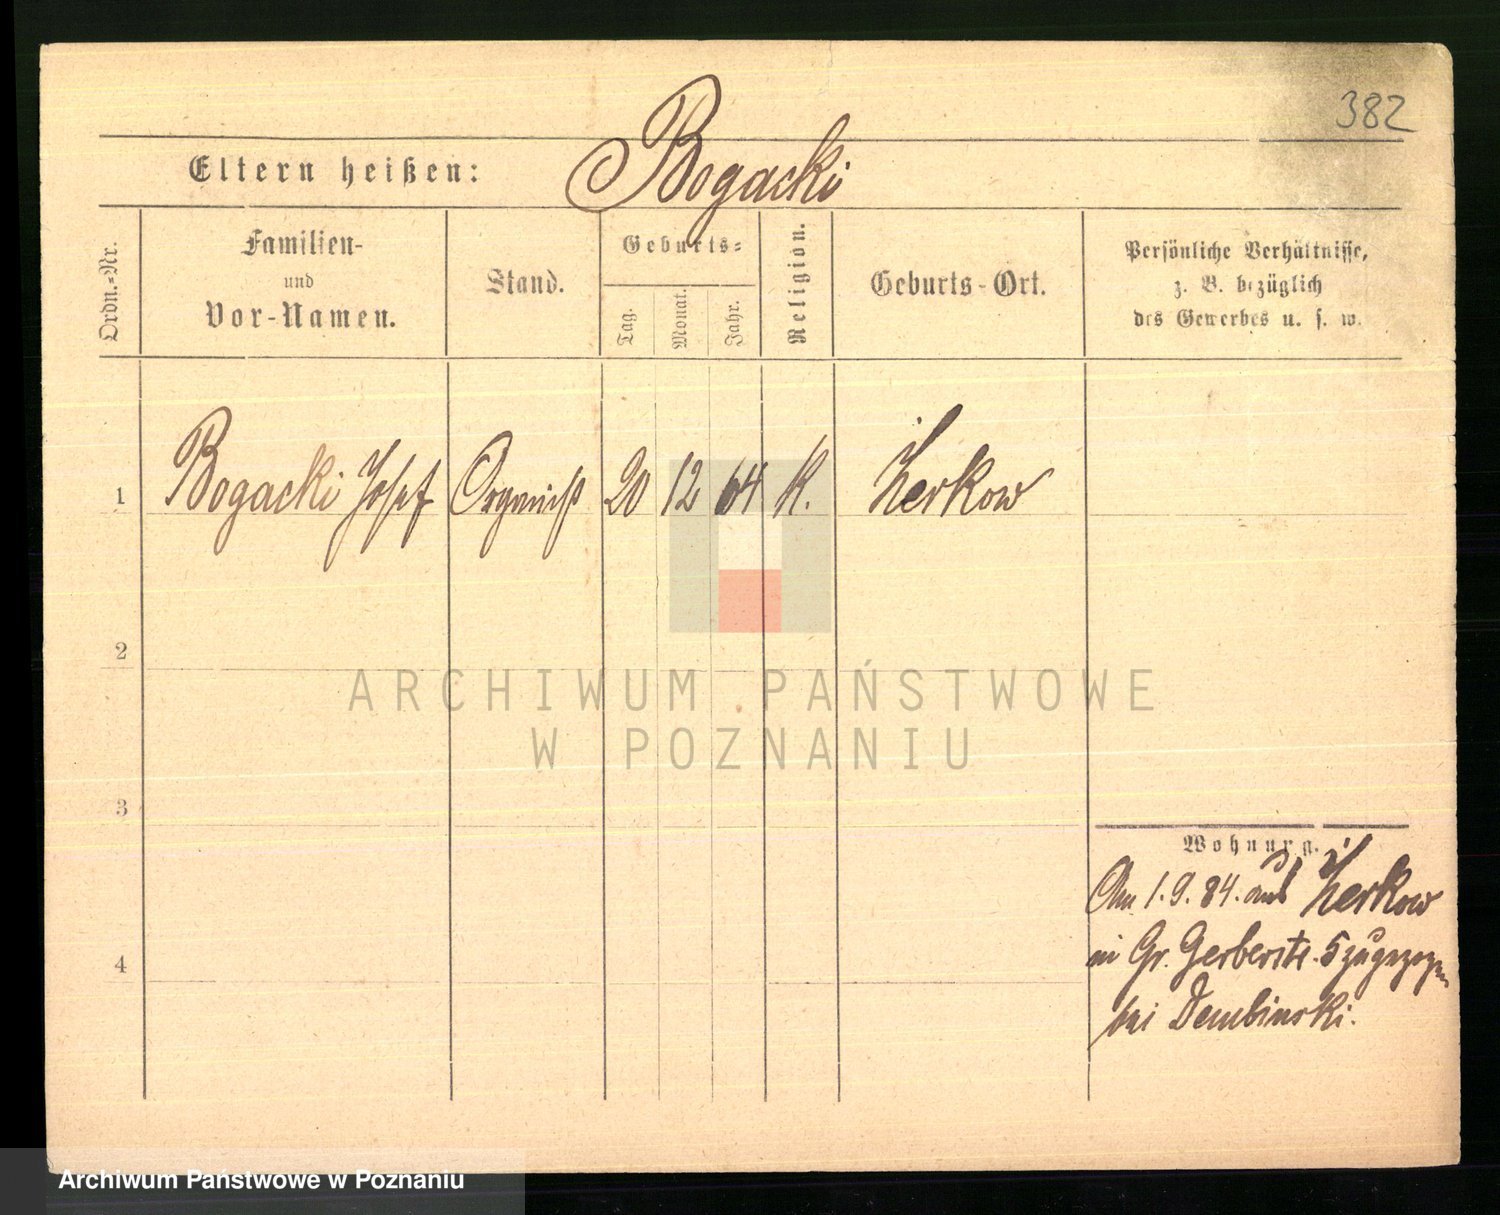 382
Eltern heißen: Bogacki
Ordn.-Nr.
Familien-
und
Vor-Namen.
Stand.
Geburts-
Tag.
Monat.
Jahr.
Religion.
Geburts-Ort.
Persönliche Verhältnisse,
z. B. bezüglich
des Gewerbes u. s. w.
1 Bogacki Josef Organist 20 12 64 K. Żerkow
2
3
4
Wohnung.
Am 1.9.84. aus Żerkow
in Gr. Gerberstr. 5 zugezogen
bei Dembinski.
ARCHIWUM PAŃSTWOWE
W POZNANIU
Archiwum Państwowe w Poznaniu